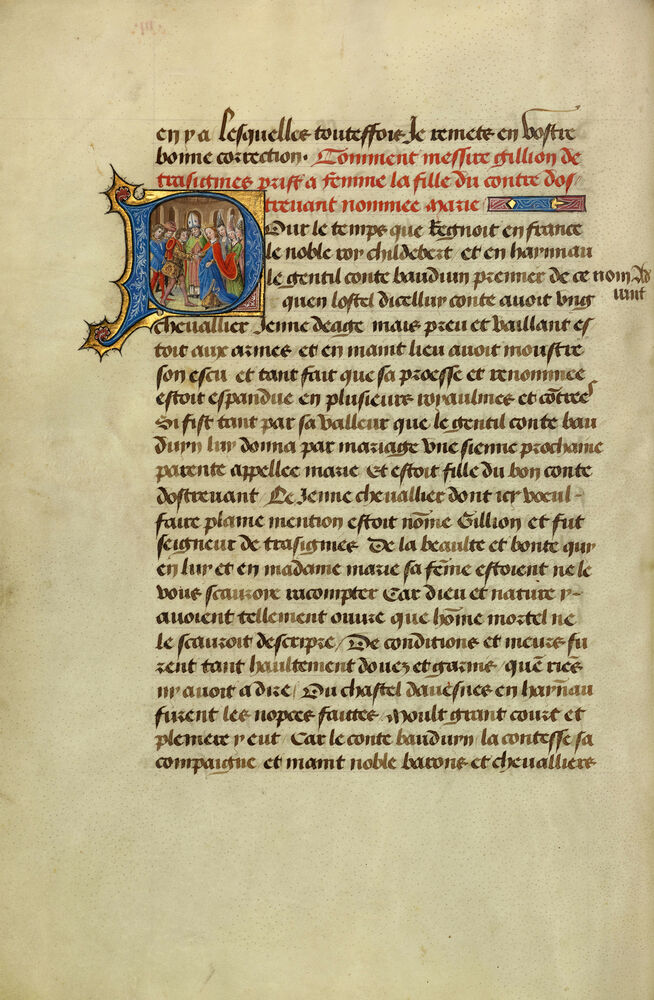 en y a lesquelles touteffois Je remets en vostre
bonne correction. Comment messire gillion de
trasignies prist a femme la fille du conte dos/
trevant nommee marie
Pour le temps que Regnoit en france
le noble roy childebert et en haynnau
le gentil conte bauduin premier de ce nom Ad
vint
quen lostel dicelluy conte avoit ung
chevallier Jenne deage mais preu et vaillant es
toit aux armes et en maint lieu avoit monstre
son escu et tant fait que sa proesse et renommee
estoit espandue en plusieurs royaulmes et cōtrees
Si fist tant par sa valleur que le gentil conte bau
duyn luy donna par mariage une sienne prochaine
parente appellee marie Et estoit fille du bon conte
dostrevant Le Jenne chevallier dont icy voeul-
faire plaine mention estoit nōme Gillion et fut
seigneur de trasignies De la beaulte et bonte quy
en luy et en madame marie sa fēme estoient ne le
vous scauroye racompter Car dieu et nature y-
avoient tellement ouvre que hōme mortel ne
le scauroit descripre / De conditions et meurs fu
rent tant haultement douez et garnis / quē riēs
ny avoit a dire / Ou chastel davesnes en haynau
furent les nopces faittes Moult grant court et
pleniere y eut Car le conte bauduyn la contesse sa
compaigne et maint noble barons et chevalliers